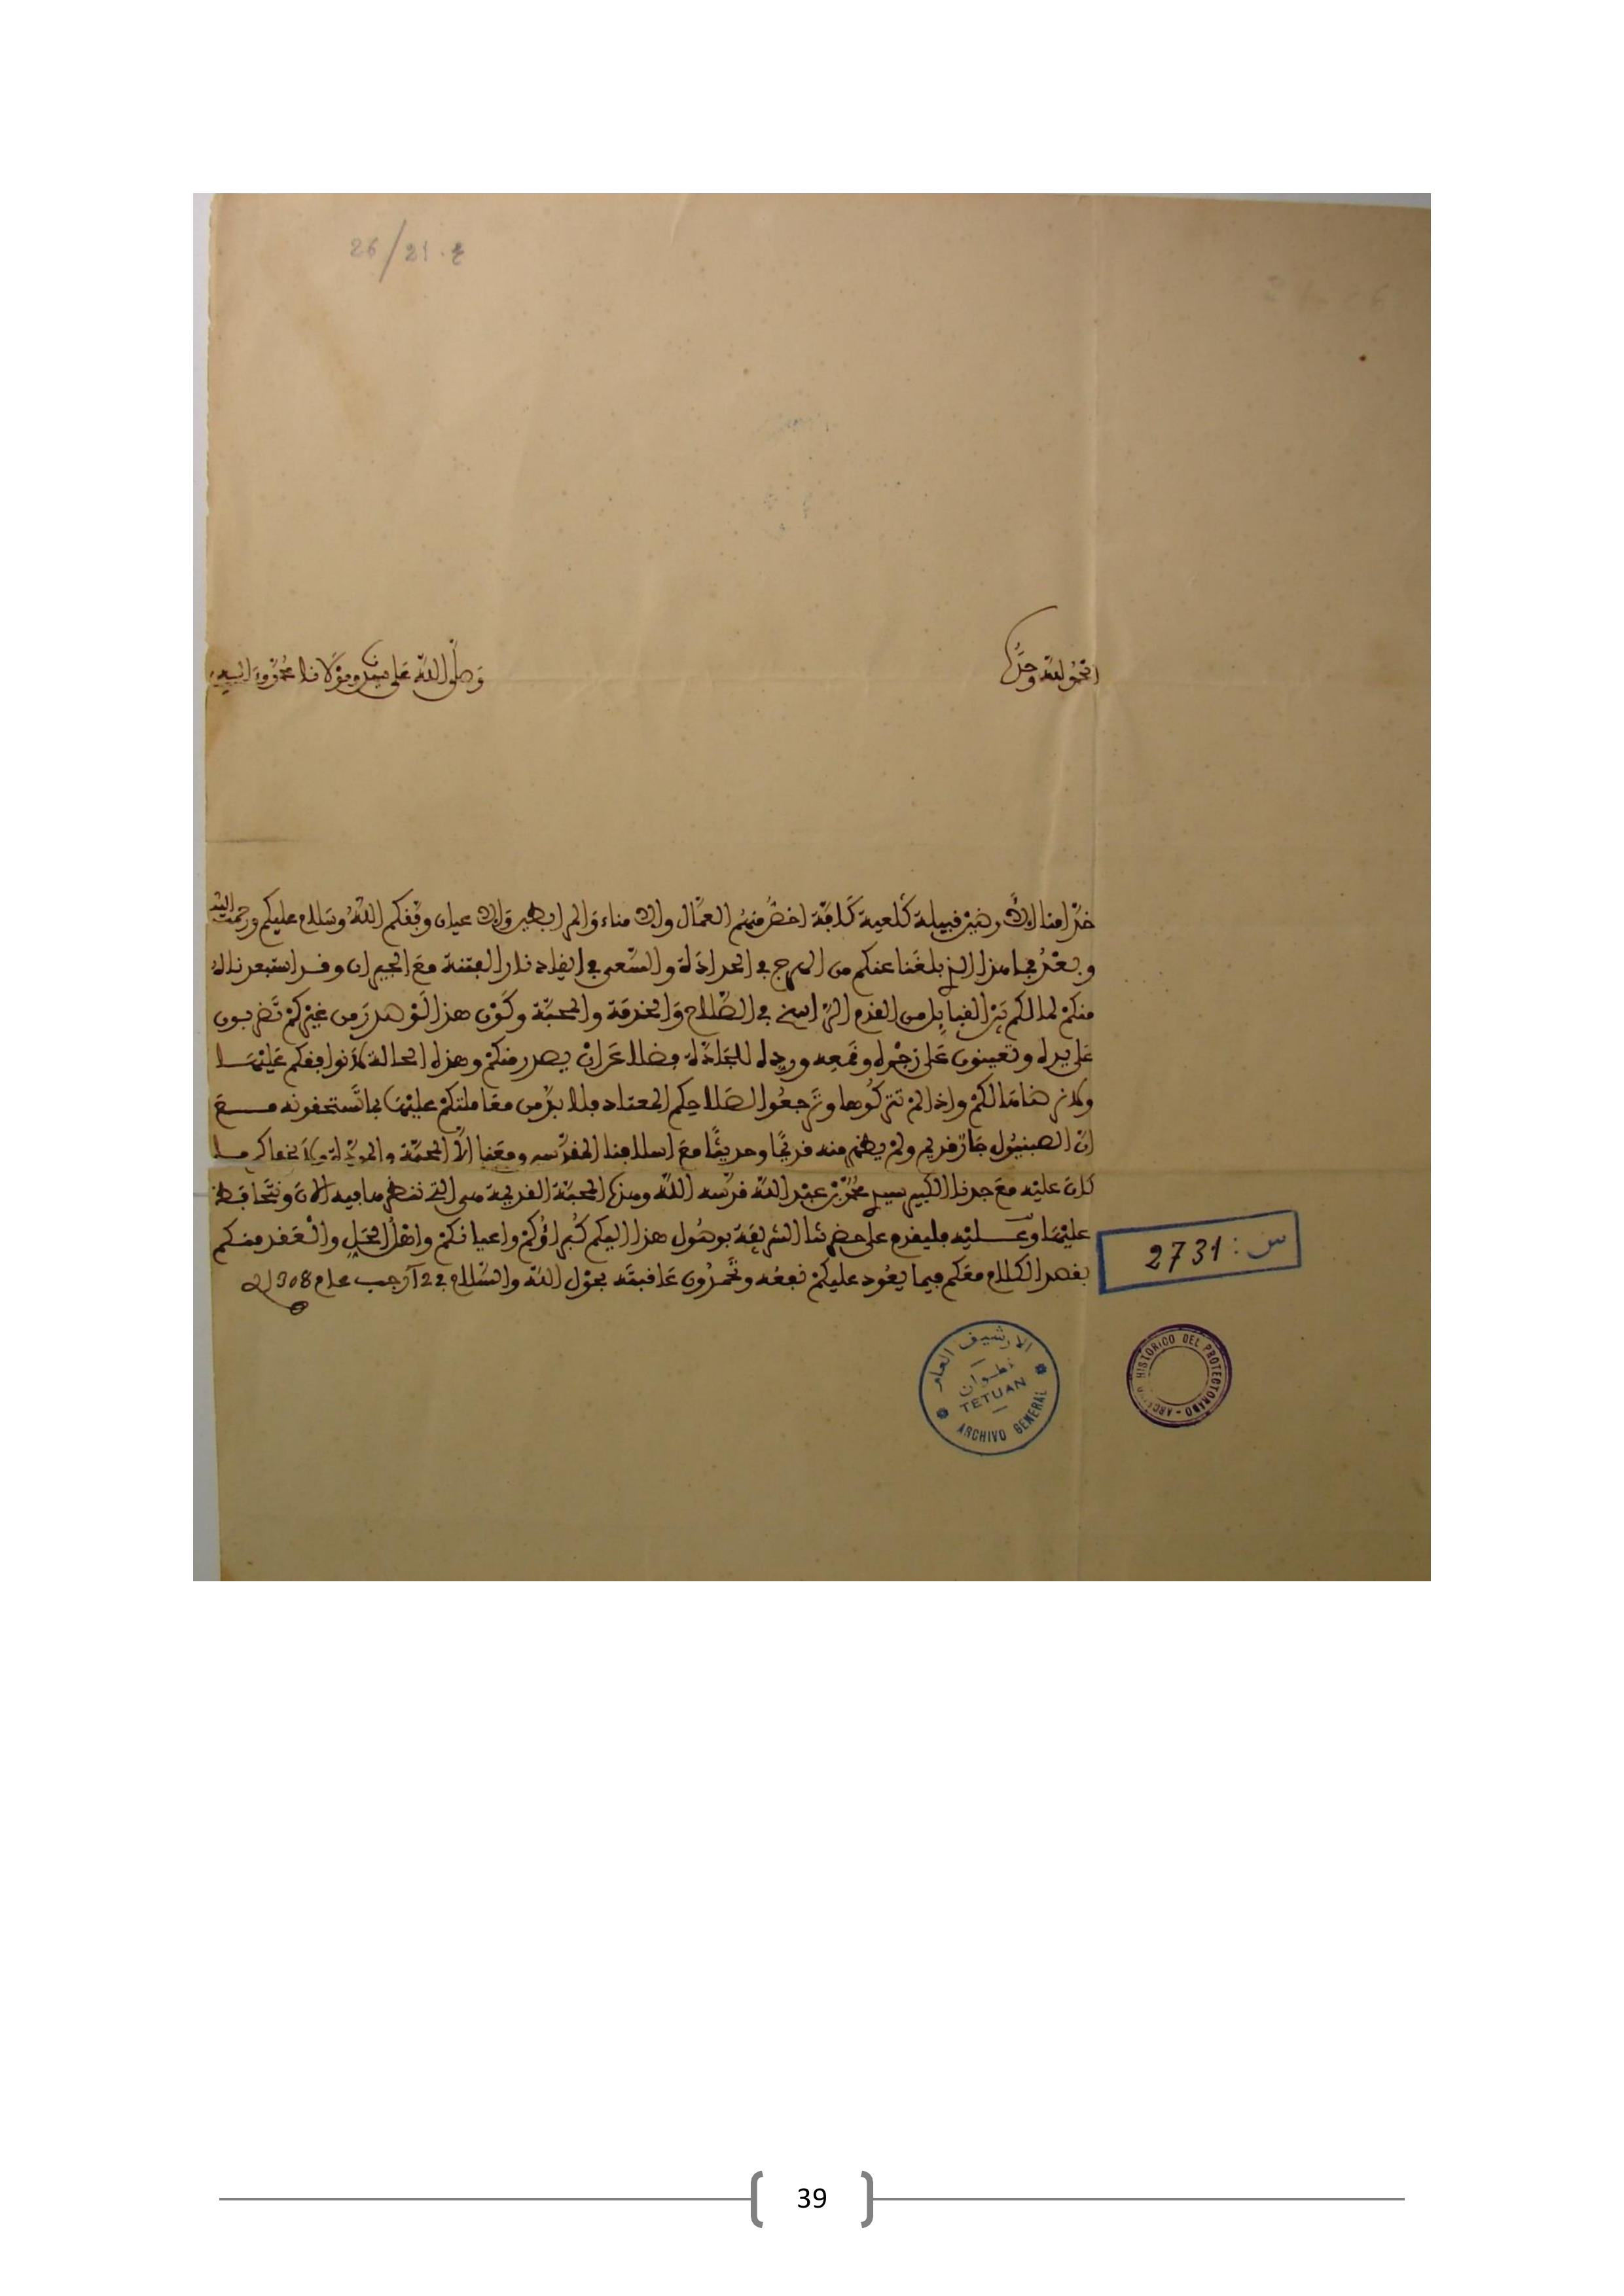 26/21.ع
الحمد لله وحده
وصلى الله على سيدنا ومولانا محمد وءاله
خدامنا الأرضين قبيلة كلعية كافة اخص منهم العمال والامناء والمرابطين والاعيان وفقكم الله وسلام عليكم ورحمت الله
وبعد فما هذا الذي بلغنا عنكم من الهرج في الحدادة والسعي في ايقاد نار الفتنة مع الجيران وقد استبعدنا
منكم لما لكم بين القبايل من القدم الراسخ في الصلاح والخدمة والمحبة وكون هذا لو صدر من غيركم تضربون
على يده وتعينون على زجره وقمعه ورده للجادة فضلا عن ان يصدر منكم وهذه الحالة لا نوافقكم عليها
ولا نرضاها لكم واذا لم تتركوها وترجعوا لصلاحكم المعتاد فلا بد من معاملتكم عليها بما تستحقونه مع
ان الصبنيول جار قديم ولم يظهر منه قديما وحديثا مع اسلافنا المقدسه ومعنا الا المحبة
كان عليه مع جدنا الكبير سيدي محمد بن عبد الله قدسه الله وهذه المحبة القديمة هي التي ننظر ما فيه الان ونتحافظ
عليها وعليه فليقدم على حضرتنا الشريفة بوصول هذا اليكم كبراؤكم واعيانكم واهل الحل والعقد منكم
بقصد الكلام معكم فيما يعود عليكم نفعه وتحمدون عاقبته بحول الله والسلام في 22 رجب عام 1308
س : 2731
الارشيف العام
تطوان
TETUAN
ARCHIVO GENERAL
HISTORICO DEL PROTECTORADO
39